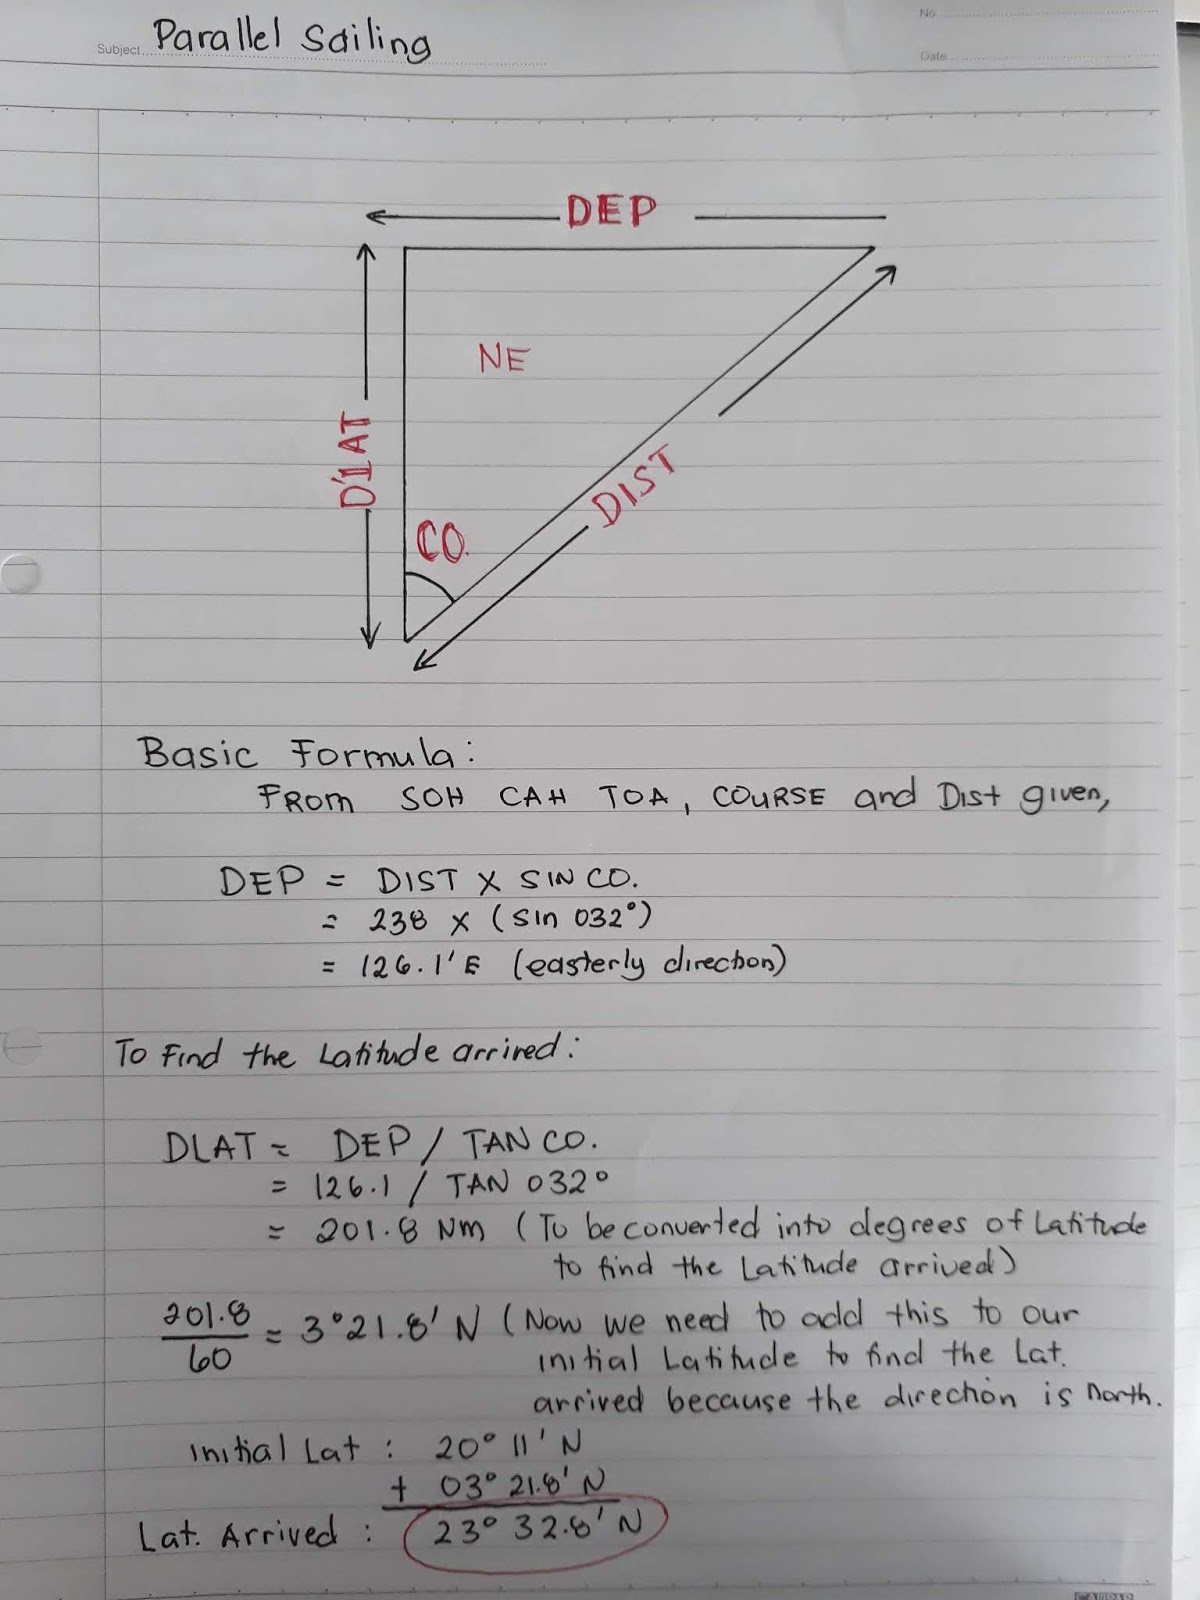 No.
Subject Parallel Sailing
Date
DEP
NE
D'LAT
DIST
CO.
Basic Formula:
From SOH CAH TOA, COURSE and Dist given,
DEP = DIST X SIN CO.
= 238 X (sin 032°)
= 126.1' E (easterly direction)
To Find the Latitude arrived:
DLAT = DEP / TAN CO.
= 126.1 / TAN 032°
= 201.8 Nm (To be converted into degrees of Latitude
to find the Latitude arrived)
201.8
60
= 3°21.8' N (Now we need to add this to our
initial Latitude to find the Lat.
arrived because the direction is north.
Initial Lat : 20° 11' N
+ 03° 21.8' N
Lat. Arrived : 23° 32.8' N
CAMPAP